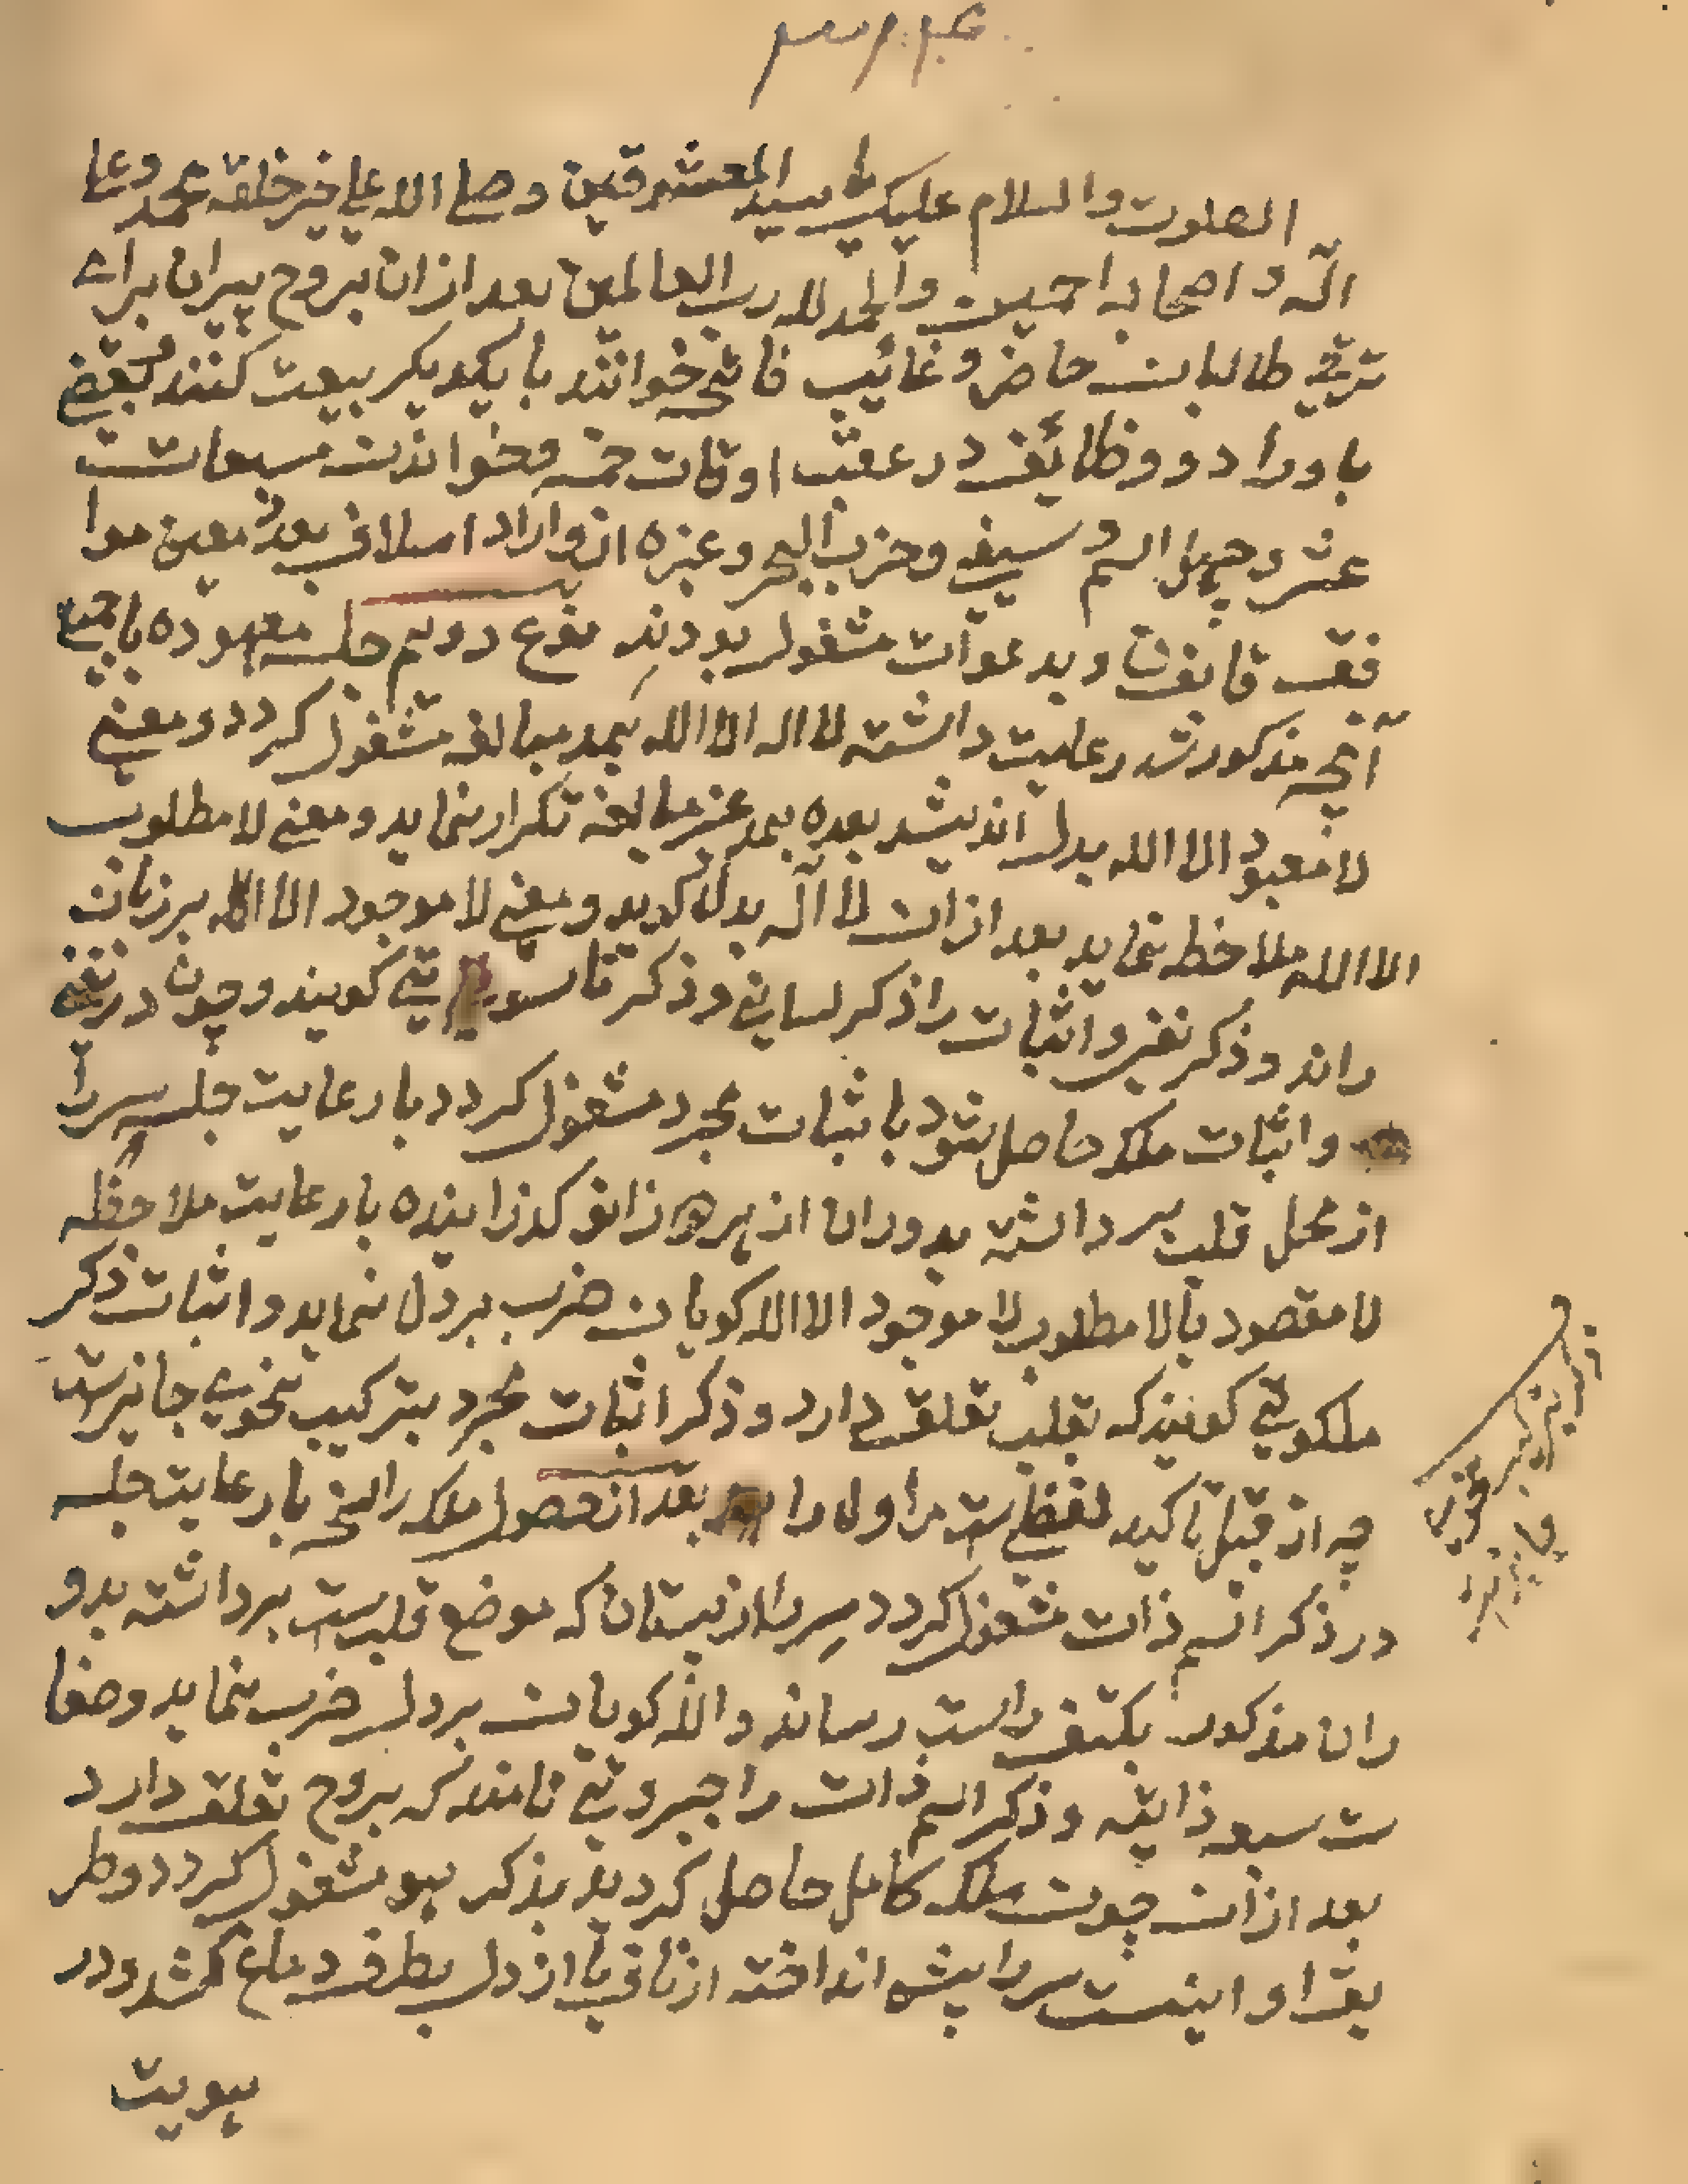 الصلوت والسلام علیک یا سید المعشرقین و صلی الله علی خیر خلقه محمد و علی
اله و اصحابه اجمین والحمد لله رب العالمین بعد ازان بروح پیران برای
ترقی طالبان حاضر و غائیب فاتحه خوانند با یکدیکر بیعت کنند بعضی
باوراد و وظائیف در عقب اوقات خمسه وخواندن مسبعات
عشر و چهل اسم و سیفی و حزب البحر و غیره از واراد اسلاف بعد معین موا
فق قانون و بدعوات مشغول بودند نوع دویم جلسه معهوده با جمیع
آنچه مذکور شد رعایت داشته لا اله الا الله بمد مبالغه مشغول کردد و معنی
لا معبود الا الله بدل اندیشد بعده بمد غیر مبالغه تکرار نماید و معنی لا مطلوب
الا الله ملاحظه نماید بعد ازان لا اله بدل کوید و معنی لا موجود الا الله بر زبان
راند و ذکر نفی و اثبات را ذکر لسانی و ذکر ناسوتی کویند و چون در نفی
و اثبات ملکه حاصل شود با ثبات مجرد مشغول کردد با رعایت جلسه سر را
از محل قلب برداشته بدوران از هر دو زانو کذرانیده با رعایت ملاحظه
لا مقصود یا لا مطلوب لا موجود الا الله کویان ضرب بر دل نماید و اثبات ذکر
ملکوتی کویند که بقلب تعلق دارد و ذکر اثبات مجرد بترکیب نحوی جائزست
چه از قبیل تاکید لفظی ست مر اول را بعد از حصول ملکه راسخه با رعایت جلسه
در ذکر اسم ذات مشغول کردد سر را از پستان که موضع قلب ست برداشته بدو
ران مذکور بکتف راست رساند و الله کویان بر دل ضرب نماید وصفا
ت سبعه ذاتیه و ذکر اسم ذات را جبروتی نامند که بروح تعلق دارد
بعد ازان چون ملکه کامل حاصل کردید بذکر هو مشغول کردد وطر
یق او اینست سر را پیش انداخته از ناف یا از دل بطرف دماغ کشد و در
هویت